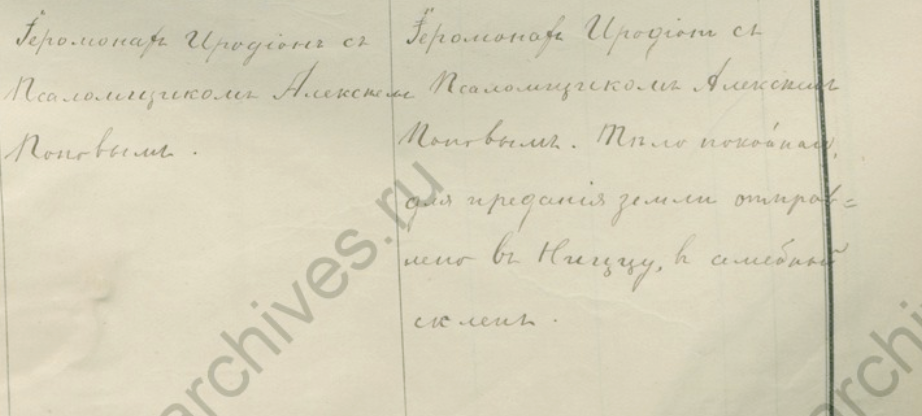 Іеромонахъ Иродіонъ съ
Псаломщикомъ Алексѣемъ
Поповымъ.
Іеромонахъ Иродіонъ съ
Псаломщикомъ Алексѣемъ
Поповымъ. Тѣло покойнаго,
для преданія земли отправ=
лено въ Ниццу, въ
склепъ.
archives.ru
archi